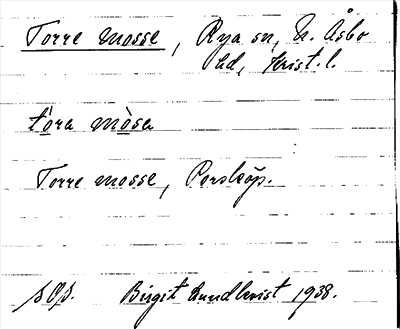 Torre mosse, Rya sn, N. Åsbo
hd, Krist. l.
tòra mòsa
Torre mosse, Perstorp.
Birgit Lundkvist 1938.